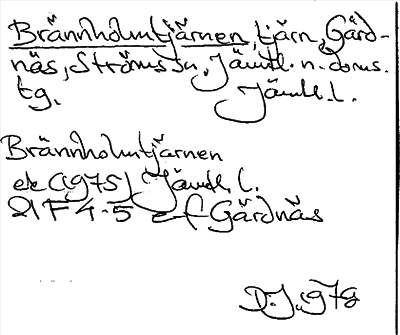 Brännholmtjärnen, tjärn, Gärd-
näs, Ströms sn, Jämtl. n. doms.
tg. Jämtl. l.
Brännholmtjärnen
ek (1975) Jämtl. l.
21F 4-5 ef Gärdnäs
D.J. 1978